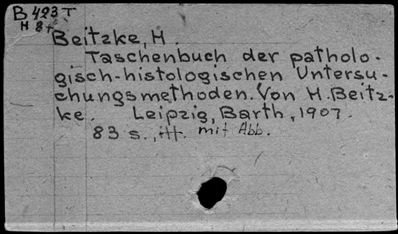 B 423 T
H 8+
Beitzke, H.
Taschenbuch der patholo-
gisch-histologischen Untersu-
chungsmethoden. Von H. Beitz-
ke. Leipzig, Barth, 1907.
83 s. mit Abb.